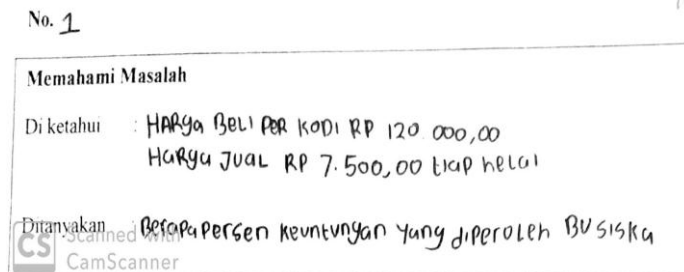 No. 1
Memahami Masalah
Di ketahui : HARga BELI PER KODI RP 120 000,00
HaRga JUAL RP 7.500,00 tiap helai
Ditanyakan Berapa persen keuntungan yang diperoleh BU siska
CS Scanned with
CamScanner